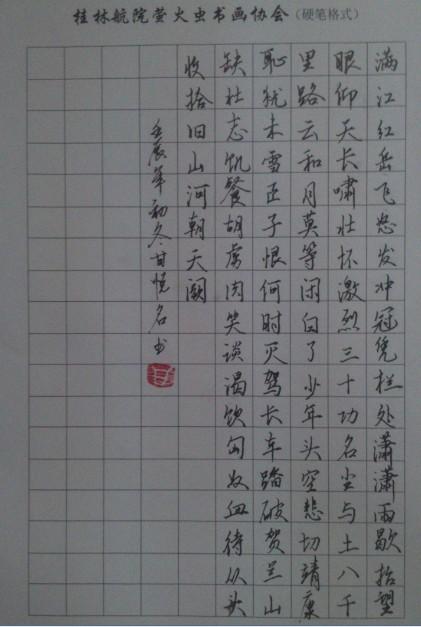 桂林航院萤火虫书画协会（硬笔格式）
满江红岳飞怒发冲冠凭栏处潇潇雨歇抬望
眼仰天长啸壮怀激烈三十功名尘与土八千
里路云和月莫等闲白了少年头空悲切靖康
耻犹未雪臣子恨何时灭驾长车踏破贺兰山
缺壮志饥餐胡虏肉笑谈渴饮匈奴血待从头
收拾旧山河朝天阙
壬辰年初冬甘悦名书